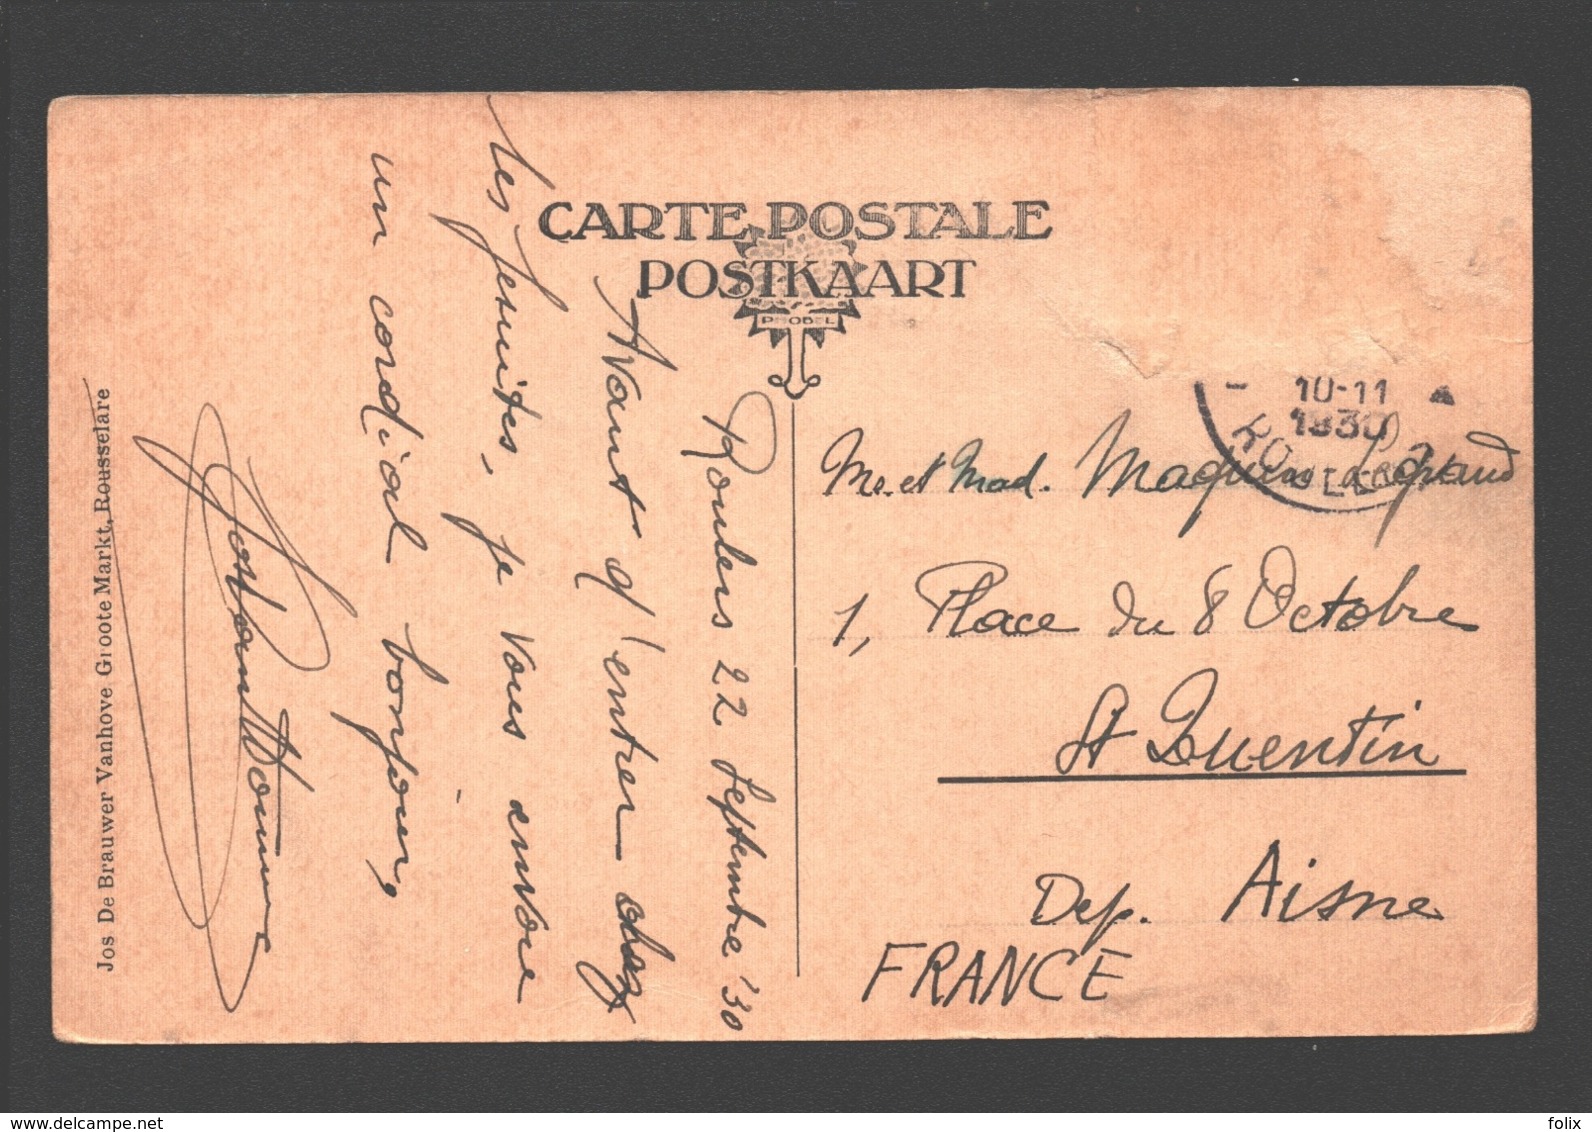 CARTE POSTALE
POSTKAART
PROBEL
Roulers 22 Septembre '30
Avant d'entrer chez
les Jesuites, je vous envoie
un cordial bonjour,
Jos De Brauwer Vanhove Groote Markt, Rousselare
10-11
1930
ROULERS
Mr. et Mad. Maquin Legrand
1, Place du 8 Octobre
St Quentin
Dep. Aisne
FRANCE
www.delcampe.net
folix